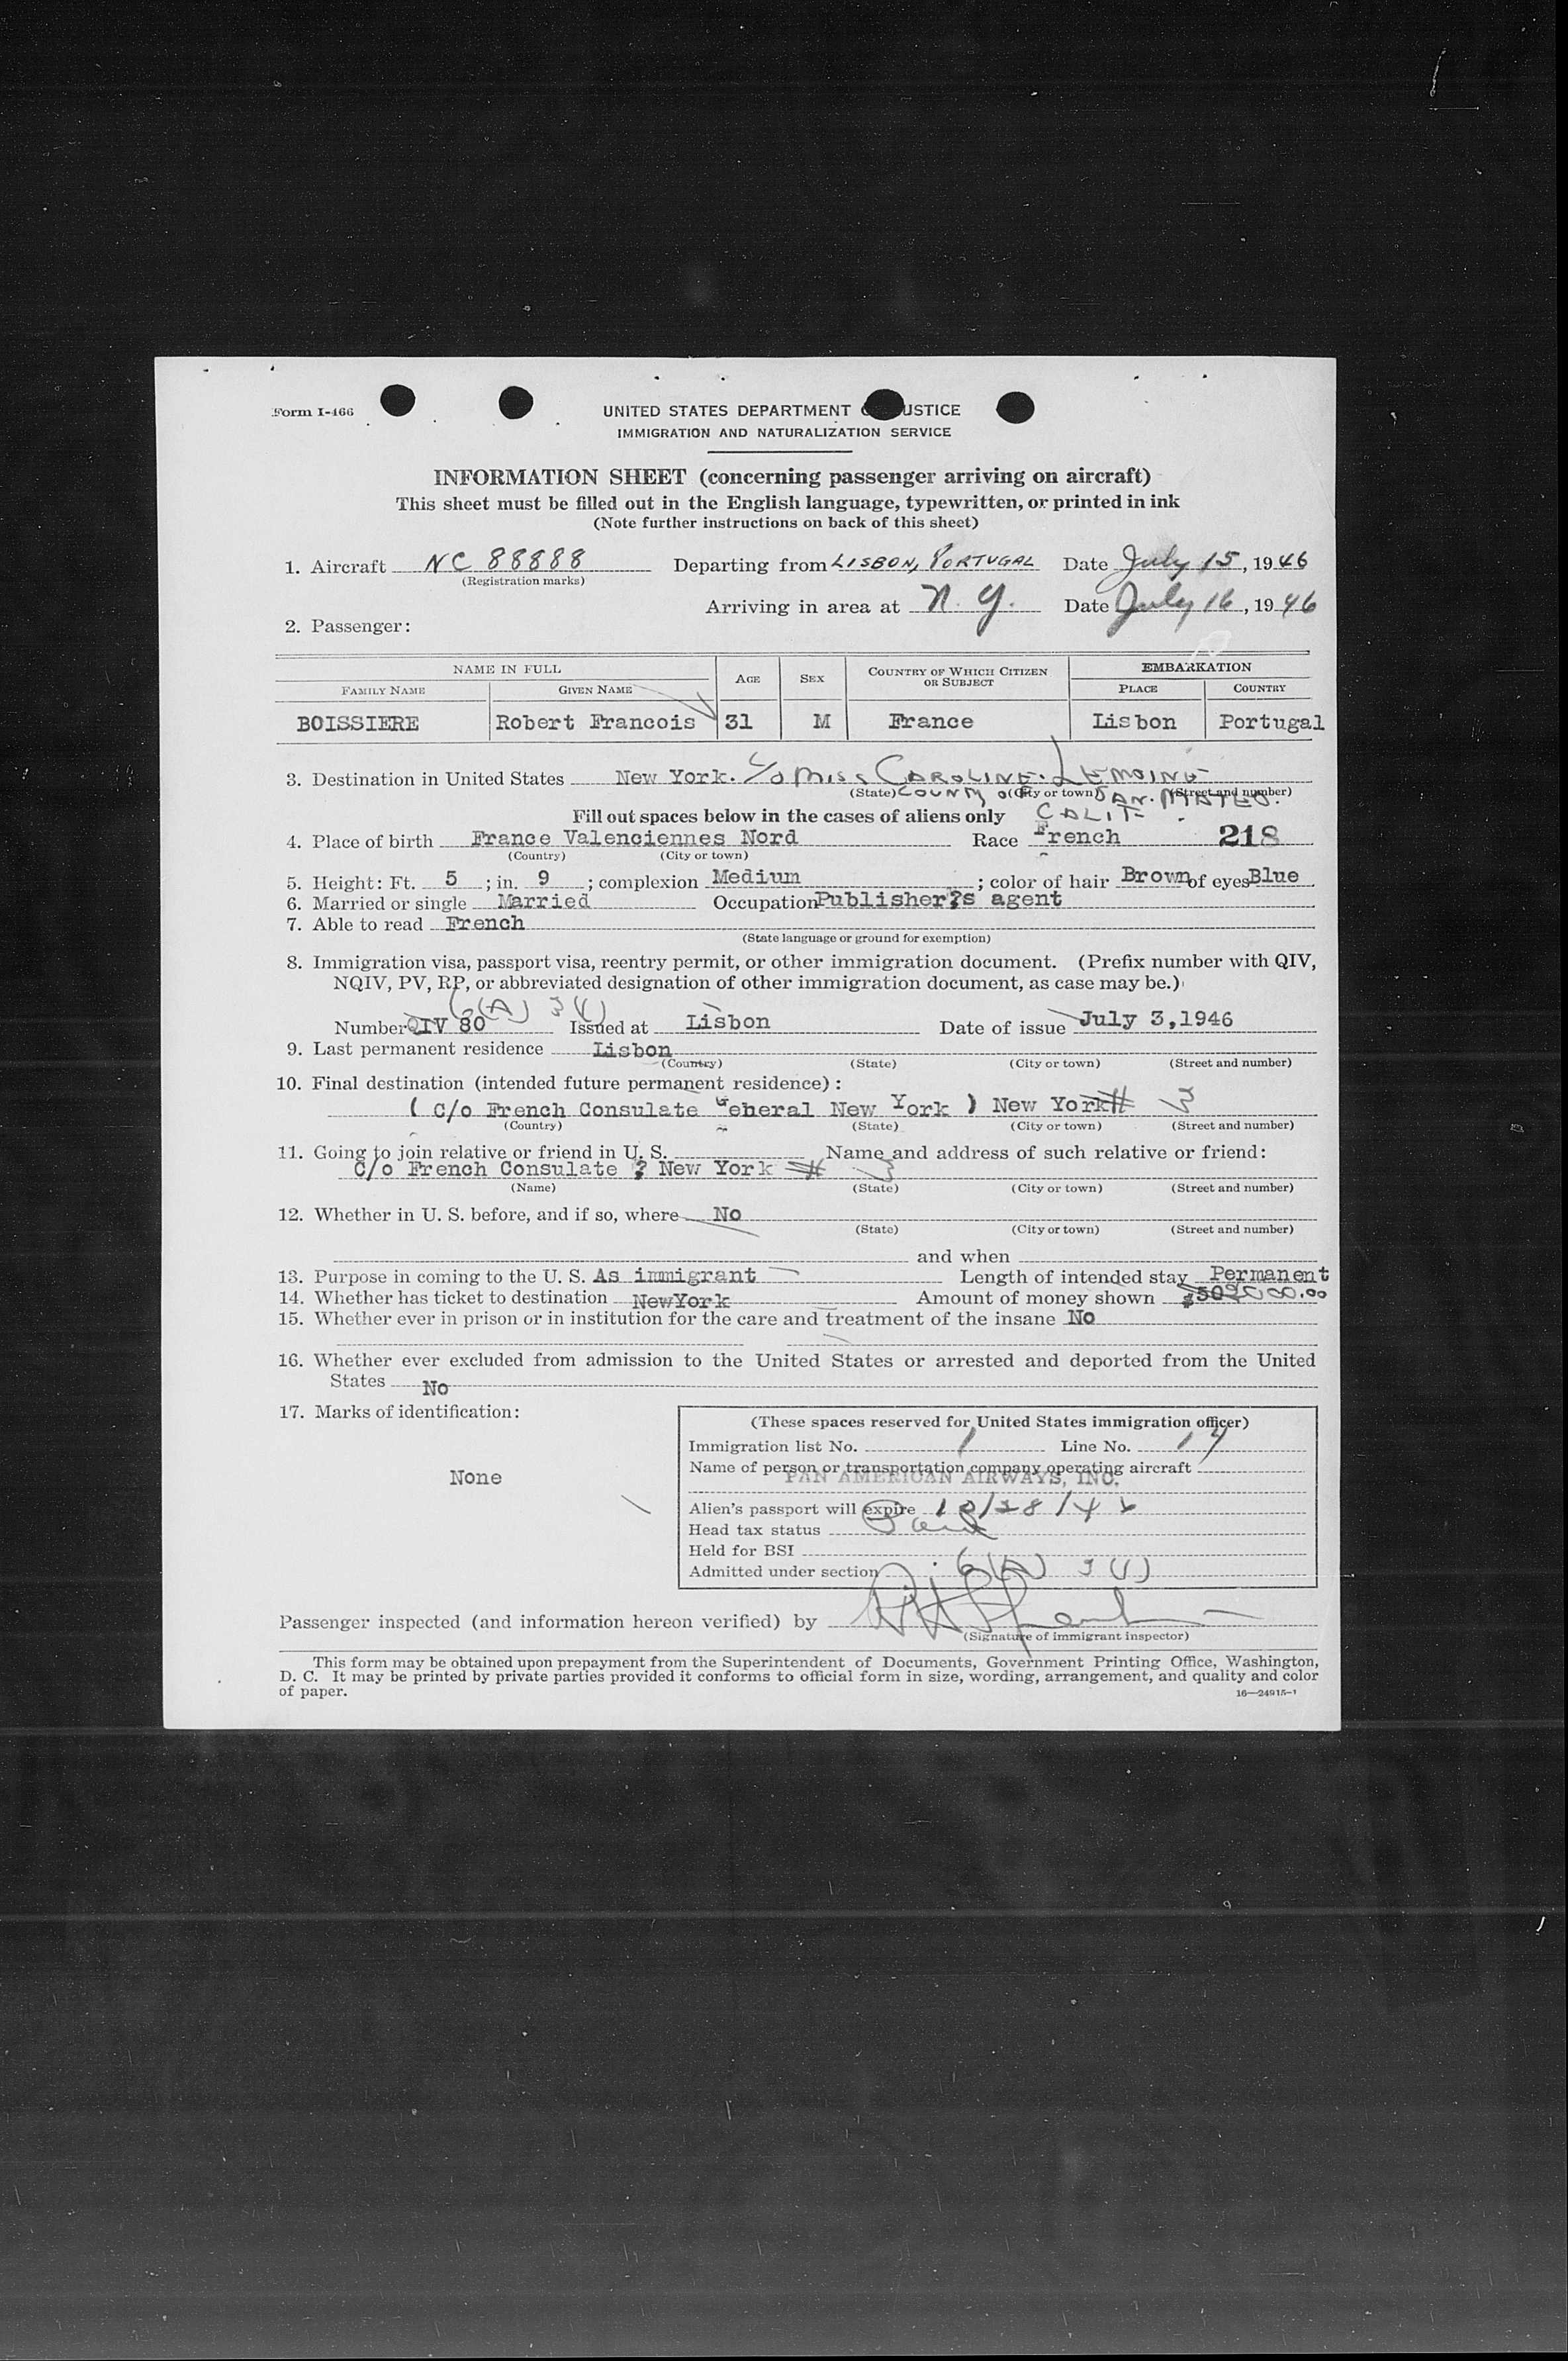 Form I-466
UNITED STATES DEPARTMENT O USTICE
IMMIGRATION AND NATURALIZATION SERVICE
INFORMATION SHEET (concerning passenger arriving on aircraft)
This sheet must be filled out in the English language, typewritten, or printed in ink
(Note further instructions on back of this sheet)
1. Aircraft NC 88888 Departing from LISBON, PORTUGAL Date July 15, 1946
(Registration marks)
Arriving in area at N.Y. Date July 16, 1946
2. Passenger:
NAME IN FULL AGE SEX COUNTRY OF WHICH CITIZEN OR SUBJECT EMBARKATION
FAMILY NAME GIVEN NAME PLACE COUNTRY
BOISSIERE Robert Francois 31 M France Lisbon Portugal
3. Destination in United States New York. c/o MISS CAROLINE. LEMOINE
(State) (City or town) (Street and number)
COUNTY OF SAN. MATEO.
CALIF.
Fill out spaces below in the cases of aliens only
4. Place of birth France Valenciennes Nord Race French 218
(Country) (City or town)
5. Height: Ft. 5; in. 9; complexion Medium; color of hair Brown of eyes Blue
6. Married or single Married Occupation Publisher?s agent
7. Able to read French
(State language or ground for exemption)
8. Immigration visa, passport visa, reentry permit, or other immigration document. (Prefix number with QIV,
NQIV, PV, RP, or abbreviated designation of other immigration document, as case may be.)
6(A) 3(1)
Number QIV 80 Issued at Lisbon Date of issue July 3,1946
9. Last permanent residence Lisbon
(Country) (State) (City or town) (Street and number)
10. Final destination (intended future permanent residence):
( C/o French Consulate General New York ) New York # 3
(Country) (State) (City or town) (Street and number)
11. Going to join relative or friend in U. S. Name and address of such relative or friend:
C/o French Consulate ? New York # 3
(Name) (State) (City or town) (Street and number)
12. Whether in U. S. before, and if so, where No
(State) (City or town) (Street and number)
and when
13. Purpose in coming to the U. S. As immigrant Length of intended stay Permanent
14. Whether has ticket to destination NewYork Amount of money shown
15. Whether ever in prison or in institution for the care and treatment of the insane No
16. Whether ever excluded from admission to the United States or arrested and deported from the United
States No
17. Marks of identification:
None
(These spaces reserved for United States immigration officer)
Immigration list No. 1 Line No. 14
Name of person or transportation company operating aircraft
PAN AMERICAN AIRWAYS, INC.
Alien's passport will expire
Head tax status Paid
Held for BSI
Admitted under section 6(A) 3(1)
Passenger inspected (and information hereon verified) by
(Signature of immigrant inspector)
This form may be obtained upon prepayment from the Superintendent of Documents, Government Printing Office, Washington,
D. C. It may be printed by private parties provided it conforms to official form in size, wording, arrangement, and quality and color
of paper.
16—24915-1